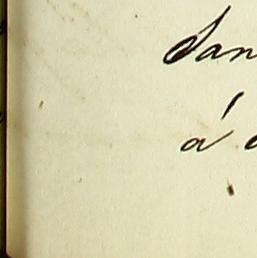 San
á